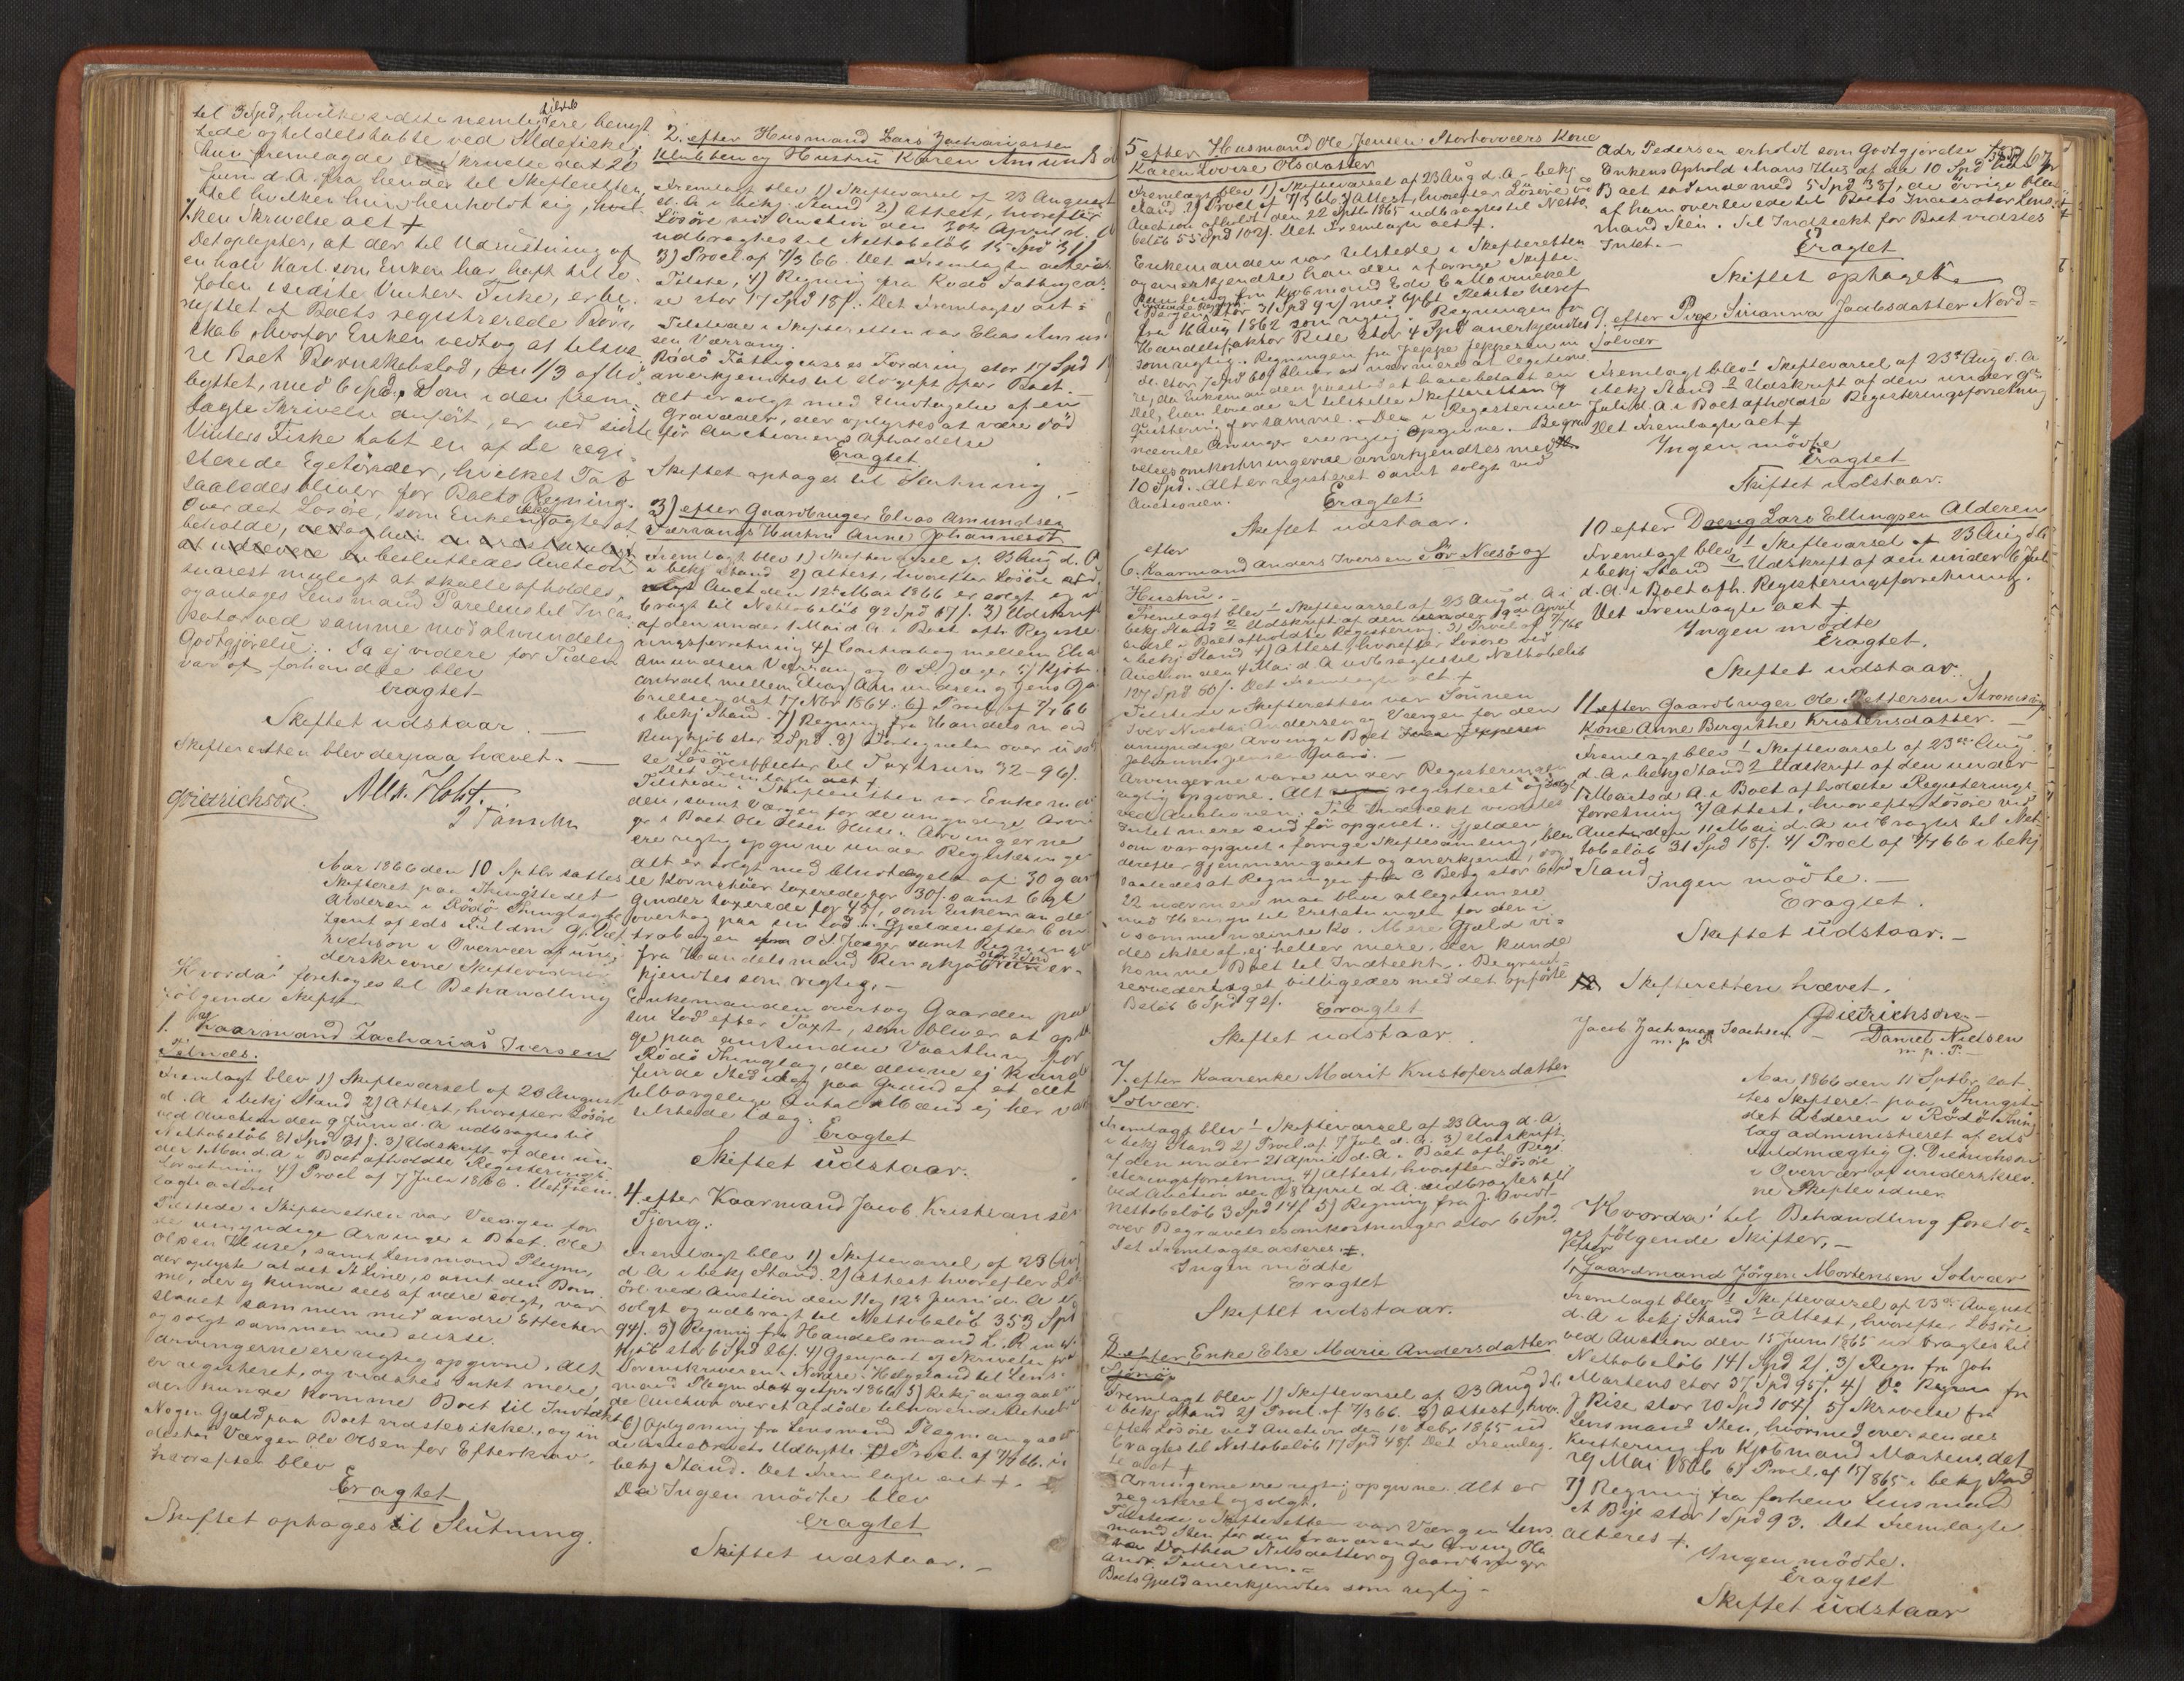 til 3 Spd, hvilke sidste nemlig ere benyt
tede og heldelskabte ved Sildefiske;
hun fremlagde en Skrivelse dat 20
Juni d. A. fra hende til Skifteretten,
til hvilken hun henholdt sig, hvil-
ken Skrivelse act +
Det oplystes, at der til Udrustning af
en halv Karl som Enken har havt til Lo-
foten i sidste Vinters Fiske, er be-
nyttet af Boets registrerede
skab, hvorfor Enken vedtog at tilsva-
re Boet
byttet, med 6 Spd. Som i den frem-
lagte Skrivelse anført, er ved sidste
Vinters Fiske tabt en af de regi-
strerede Egetønder, hvilket Tab
saaledes bliver for Boets Regning.
Over det Løsøre, som Enken ikke agter at
beholde,
besluttedes Auction
snarest muligt at skulle afholdes,
og antages Lensmand til Inca-
sator ved samme mod almindelig
Godtgjørelse. Da ej videre for Tiden
var at forhandle blev
Eragtet
Skiftet udstaar. —
Skifteretten blev derpaa hævet. —
GDietrichson. Alex. Holst.
Aar 1866 den 10 Sptbr sattes
Skifteret paa Thingstedet
Alderen i Rødø Thinglag
af eds Fuldm G. Diet
richson i Overvær af un-
derskrevne Skiftevidner
Hvorda! foretoges til Behandling
følgende Skifter
1. efter Kaarmand Zacharias Iversen
Selnæs.
Fremlagt blev 1) Skiftevarsel af 23 August
d. A i bekj Stand 2) Attest, hvorefter Løsøre
ved Auction den 9 Juni d. A udbragtes til
Nettobeløb 81 Spd 31 s. 3) Udskrift af den un-
der 1 Mai d. A i Boet afholdte Registerings-
forretning 4) Procl af 7 Juli 1866. Det Frem-
lagte acteres
Tilstede i Skifteretten var Værgen for
de umyndige Arvinger i Boet. Ole
Olsen Huse, samt Lensmand Plegm,
der oplyste at det St Line, samt den Bom-
me, der ej kunde sees af være solgt, var
slaaet sammen med andre Effecter
og solgt sammen med disse.
Arvingerne ere rigtig opgivne. Alt
er registeret, og vidstes Intet mere,
der kunde komme Boet til Indtækt
Nogen Gjæld paa Boet vidstes ikke, og in
destaar Værgen Ole Olsen for Efterkrav,
hvorefter blev
Eragtet
Skiftet optages til Slutning.
2. efter Husmand Lars Zachariassen
Klubben og Hustru Karen Amundsd
Fremlagt blev 1) Skiftevarsel af 23 August
d. A i bekj. Stand 2) Attest, hvorefter
Løsøre ved Auction den 30te April d. A
udbragtes til Nettobeløb 15 Spd 31 s
3) Procl af 7/3 66. Det Fremlagte acteres
Tilstede, 4) Regning fra Rødø Fattigcas-
se stor 17 Spd 18 s. Det Fremlagte act =
Tilstede i Skifteretten var Elias Amund
sen Værrang.
Rødø Fattigcasses Fordring stor 17 Spd 1
anerkjendtes til Udgift for Boet.
Alt er solgt med Undtagelse af en
Gravaaer, der oplystes at være død
før Auctionens Afholdelse
Eragtet
Skiftet optages til Slutning. —
3) efter Gaardbruger Elias Amundsen
Værrangs Hustru Anne Johannesdt
Fremlagt blev 1) Skiftevarsel af 23 Aug d. A
i bekj Stand 2) Attest, hvorefter Løsøre
Auct den 12te Mai 1866 er solgt og ud
bragt til Nettobeløb 92 Spd 67 s. 3) Udskrift
af den under 1 Mai d. A i Boet afh Registe-
ringsforretning 4) Contrakt mellem Elias
Amundsen Værrang og O S Jæger 5) Kjøb
contract mellem Elias Amundsen og Jens Ga-
brielsen dat 17 Nbr 1864. 6) Procl af 7/7 66
i bekj Stand. 7) Regning fra Handelsmand
Ringkjøb stor 2 Spd. 8) Fortegnelse over usol
te Løsøreeffecter til Taxtsum 72-96 s.
Det Fremlagte act +
Tilstede i Skifteretten var Enkeman
den, samt Værgen for de umyndige Arvin
ger i Boet Ole Olsen Huse. Arvingerne
ere rigtig opgivne under Registeringen
Alt er solgt med Undtagelse af 30 gar
te Kornstöer taxerede for 30 s. samt 6
Grinder taxerede for 45 s, som Enkemanden
overtog paa sin Lod. Gjælden efter Con
trabogen fra O S Jæger samt Regning
fra Handelsmand Ringkjøb stor 2 Spd aner-
kjendtes som rigtig. —
Enkemanden overtog Gaarden paa
sin Lod efter Taxt, som bliver at opta
ge paa anstundne Vaarthing for
Rødø Thinglag, da denne ej kunde
finde Sted idag paa Grund af at det
tilborgelige Antal Mænd ej her var
tilstede idag.
Eragtet
Skiftet udstaar.
4. efter Kaarmand Jacob Kristiansen
Tjong.
Fremlagt blev 1) Skiftevarsel af 23 Aug
d. A i bekj Stand. 2) Attest hvorefter Løs
øre ved Auction den 11 og 12te Juni d. A er
solgt og udbragt til Nettobeløb 353 Spd
94 s. 3) Regning fra Handelsmand L. Ring
kjøb stor 6 Spd 26 s. 4) Gjenpart af Skrivelse fra
Sorenskriveren i Nordre Helgeland til Lens-
mand Plegm dat 9 Apr 1866 5) Rekj angaaen
de Auction over et Afdøde tilhørende
6) Oplysning fra Lensmand Plegm angaaen
de Udbytte. 7) Procl. af 7/7 66. i
bekj Stand. Det Fremlagte act +.
Da Ingen mødte blev
Eragtet
Skiftet udstaar. —
5 efter Husmand Ole Jensen Storhovæers Kone
Karen Lovise Olsdatter
Fremlagt blev 1) Skiftevarsel af 23 Aug d. A - bekj
Stand 2) Procl af 7/3 66 3) Attest, hvorefter Løsøre ved
Auction afholdt den 22 Sptb 1865 udbragtes til Netto-
beløb 55 Spd 102 s. Det Fremlagte act +.
Enkemanden var tilstede i Skifteretten
og anerkjendte han den i forrige Skifte-
samling fra Kjøbmand Edv. Erh
i Bergen stor 31 Spd 89 s med 6 pCt Rente heraf
fra 16 Aug 1862 som rigtig. Regningen fra
Handelsfaktor Rise stor 4 Spd anerkjendtes
som rigtig. Regningen fra Jeppe Jeppesen
stor 7 Spd 60 s bliver at nærmere at legitime-
re, da Enkemanden paastod at have betalt en
Del, han lovede at tilstille Skifteretten
Quittering for samme. — De i Registeringen
nævnte Arvinger ere rigtig opgivne. Begra-
velsesomkostningerne anerkjendtes med
10 Spd. Alt er registeret samt solgt ved
Auctionen. Eragtet:
Skiftet udstaar.
6. efter Kaarmand Anders Iversen Sör Næsö og
Hustru. —
Fremlagt blev 1 Skiftevarsel af 23 Aug d. A i
bekj Stand 2 Udskrift af den under 19de April
d. A i Boet afholdte Registering. 3) Procl af 7/7 66
i bekj Stand 4) Attest, hvorefter Løsøre ved
Auction den 4 Mai d. A udbragtes til Nettobeløb
127 Spd 60 s. Det Fremlagte act +
Tilstede i Skifteretten var Sønnen
Iver Nicolai Andersen og Værgen for den
umyndige Arving i Boet
Johannes Jensen
Arvingerne vare under Registeringen
rigtig opgivne. Alt registeret og solgt
ved Auctionen. Til Indtækt vidstes
Intet mere end før opgivet. Gjælden
som var opgivet i forrige Skiftesamling, blev
derefter gjennemgaaet og anerkjendt, dog
saaledes at Regningen fra C Berg stor 6 Spd
22 nærmere maa blive at legitimere
med Hensyn til Erstatningen for den i
i samme nævnte Ko. Mere Gjæld vi-
des ikke af, ej heller mere, der kunde
komme Boet til Indtækt. Begravel-
sesvederlaget billigedes med det opførte
Beløb 6 Spd 92 s. Eragtet
Skiftet udstaar.
7. efter Kaarenke Marit Kristofersdatter
Solvær.
Fremlagt blev 1 Skiftevarsel af 23 Aug d. A.
i bekj Stand 2) Procl. af 7 Juli d. A. 3) Udskrift
af den under 21 April d. A. i Boet afh Regi-
steringsforretning 4) Attest, hvorefter Løsøre
ved Auction den 28 April d. A. udbragtes til
Nettobeløb 3 Spd 14 s. 5) Regning fra J.
over Begravelsesomkostninger stor 6 Spd.
Det Fremlagte acteres. +.
Ingen mødte
Eragtet
Skiftet udstaar.
8. efter Enke Else Marie Andersdatter
Fremlagt blev 1) Skiftevarsel af 23 Aug d. A.
i bekj Stand 2) Procl. af 7/3 66. 3) Attest, hvor-
efter Løsøre ved Auction den 12 Febr 1865 ud
bragtes til Nettobeløb 17 Spd 48 s. Det Fremlag-
te act +
Arvingerne ere rigtig opgivne. Alt er
registeret og solgt.
Tilstede i Skifteretten var Værgen Lens-
mand Sten for den fraværende Arving Ole
Dorthea Nilsdatter og Gaardbruger
Andr. Pedersen. —
Boets Gjæld anerkjendtes som rigtig —
67
Adr Pedersen erholdt som Godtgjørelse for
Enkens Ophold i hans Hus af de 10 Spd
Boet 5 Spd 38 s, de øvrige blev
af ham overleverede til Boets Incassator Lens-
mand Sten. Til Indtækt for Boet vidstes
Intet. —
Eragtet
Skiftet optaget. —
9. efter Pige Sirianna Jacobsdatter Nord-
Solvær
Fremlagt blev 1 Skiftevarsel af 23de Aug d. A
i bekj Stand 2 Udskrift af den under 9de
Juli d. A i Boet afholdte Registeringsforretning
Det Fremlagte act +
Ingen mødte
Eragtet
Skiftet udstaar.
10 efter Dreng Lars Ellingsen Alderen
Fremlagt blev 1 Skiftevarsel af 23 Aug d. A
i bekj Stand 2 Udskrift af den under 6 Juli
d. A. i Boet afh. Registeringsforretning.
Det Fremlagte act +
Ingen mødte
Eragtet.
Skiftet udstaar.
11 efter Gaardbruger Ole Pettersen Strömsöy
Kone Anne Bergithe Kristensdatter. —
Fremlagt blev 1 Skiftevarsel af 23de Aug
d. A i bekj Stand 2 Udskrift af den under
17 Marts d. A. i Boet afholdte Registerings-
forretning 3) Attest, hvorefter Løsøre ved
Auct. den 11 Mai d. A udbragtes til Net-
tobeløb 31 Spd 18 s. 4) Procl af 7/7 66 i bekj
Stand
Ingen mødte. —
Eragtet.
Skiftet udstaar. —
Skifteretten hævet.
GDietrichson —
Jacob Zacharias Isachsen — Daniel Nielsen
m. p. P. m. p. P. —
Aar 1866 den 11 Sptbr. sat-
tes Skifteret paa Thingste-
det Alderen i Rødø Thing-
lag administreret af eds
Fuldmægtig G. Dietrichson
i Overvær af underskrev-
ne Skiftevidner.
Hvorda! til Behandling foreto-
ges følgende Skifter, —
efter
1, Gaardmand Jørgen Mortensen Solvær
Fremlagt blev 1 Skiftevarsel af 23de August
d. A i bekj Stand 2 Attest, hvorefter Løsøre
ved Auction den 15 Juni 1865 udbragtes til
Nettobeløb 141 Spd 2 s. 3) Regn fra Joh
Martens stor 37 Spd 95 s. 4) Do Regn fra
J Rise stor 20 Spd 104 s 5) Skrivelse fra
Lensmand Sten, hvormed oversendes
Kvittering fra Kjøbmand Martens, dat
29 Mai 1866 6) Procl. af 15/ 865 i bekj Stand
7) Regning fra forhenv Lensmand
A Bye stor 1 Spd 93. Det Fremlagte
acteres +.
Ingen mødte.
Eragtet
Skiftet udstaar